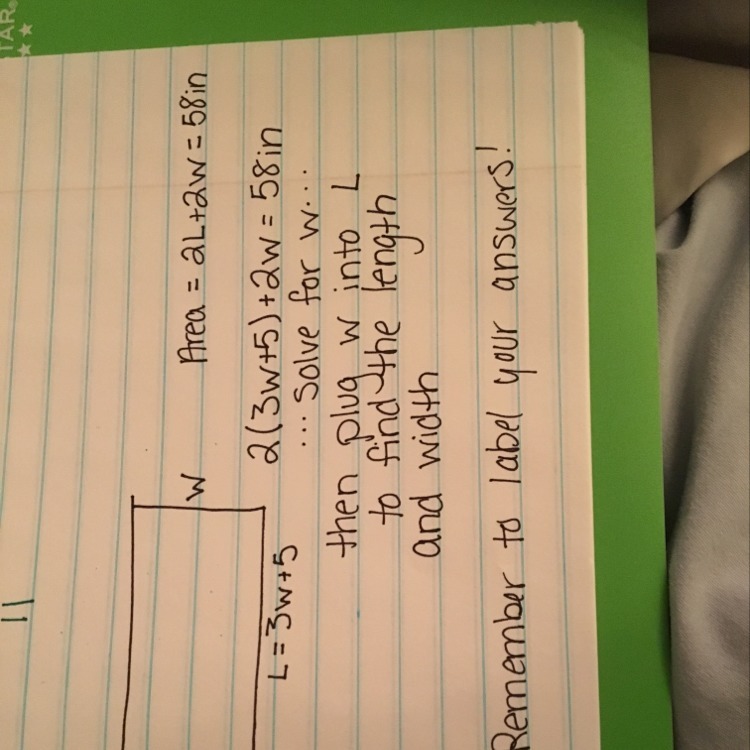 11
W
Area = 2L+2W = 58in
L = 3W+5
2(3W+5)+2W = 58in
...Solve for W...
then plug W into L
to find the length
and width
Remember to label your answers!